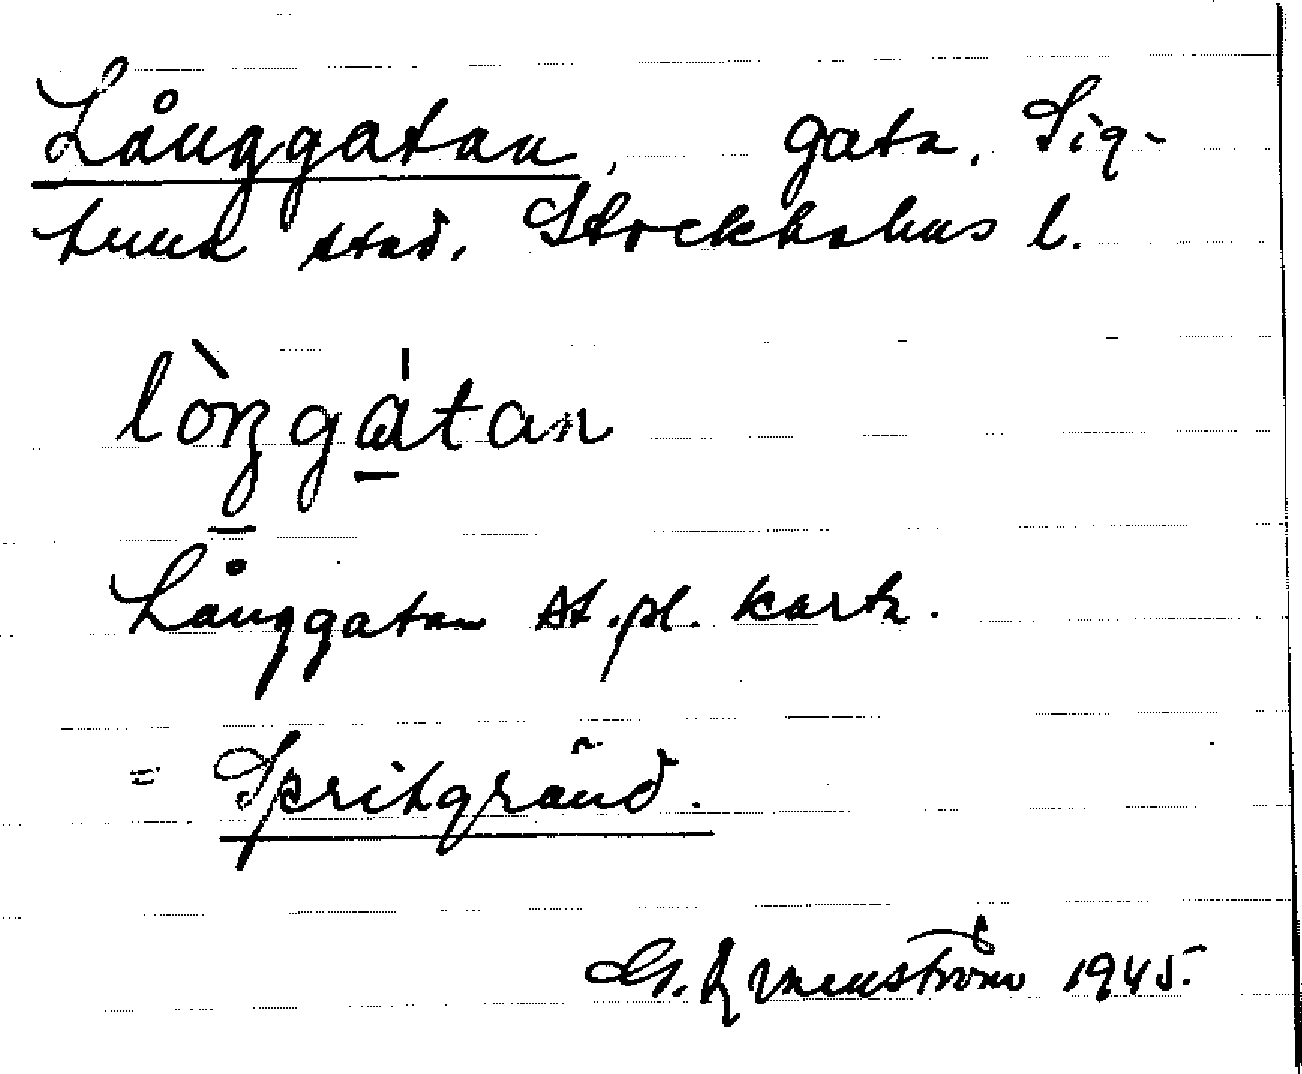 Långgatan, gata, Sig-
tuna stad, Stockholms l.
lòŋgàtan
Långgatan st.pl. karta.
= Spritgränd.
G. 1945.